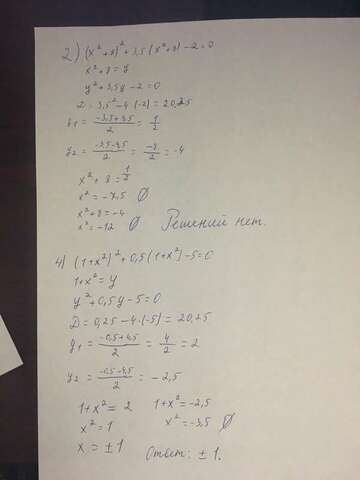 2) (x²+8)²+3,5(x²+8)-2=0
x²+8=y
y²+3,5y-2=0
D=3,5²-4·(-2)=20,25
y₁=(-3,5+4,5)/2=1/2
y₂=(-3,5-4,5)/2=-8/2=-4
x²+8=1/2
x²=-7,5 ∅
x²+8=-4
x²=-12 ∅ Решений нет.
4) (1+x²)²+0,5(1+x²)-5=0
1+x²=y
y²+0,5y-5=0
D=0,25-4·(-5)=20,25
y₁=(-0,5+4,5)/2=4/2=2
y₂=(-0,5-4,5)/2=-2,5
1+x²=2 1+x²=-2,5
x²=1 x²=-3,5 ∅
x=±1 Ответ: ±1.